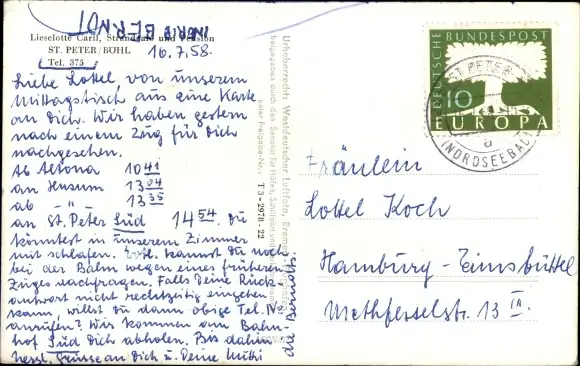 INGRID BERNDT
Lieselotte Carll, Strandcafé und Pension
ST. PETER/BÖHL
Tel. 375
10.7.58.
Liebe Lottel von unserem
Mittagstisch aus eine Karte
an Dich. Wir haben gestern
nach einem Zug für Dich
nachgesehen.
Ab Altona 10 41
an Husum 13 04
ab -"- 13 35
an St. Peter Süd 14 54. Du
könntest in unserem Zimmer
mit schlafen. Evtl. kannst Du noch
bei der Bahn wegen eines früheren
Zuges nachfragen. Falls Deine Rück-
antwort nicht rechtzeitig eingehen
kann, willst Du dann obige Tel. Nr.
anrufen? Wir kommen am Bahn-
hof Süd Dich abholen. Bis dahin
herzl. Grüsse an Dich u. Deine Mutti
die Berndts.
Urheberrecht: Westdeutscher Luftfoto, Bremen
freigegeben durch den Senator für Häfen, Schiffahrt
unter Freigabe-Nr.: T 3-2978-22
DEUTSCHE BUNDESPOST
10
EUROPA
ST. PETER
a
(NORDSEEBAD)
Fräulein
Lottel Koch
Hamburg-Eimsbüttel
Methfesselstr. 13 III.